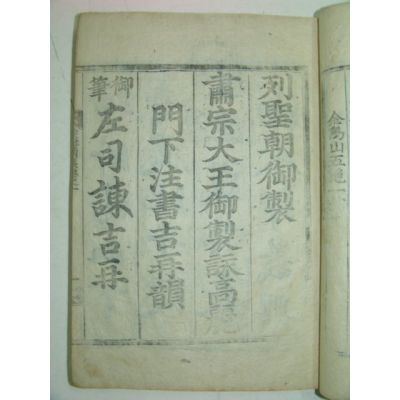 列聖朝御製
肅宗大王御製詠高麗
門下注書吉再韻
御筆
左司諫吉再